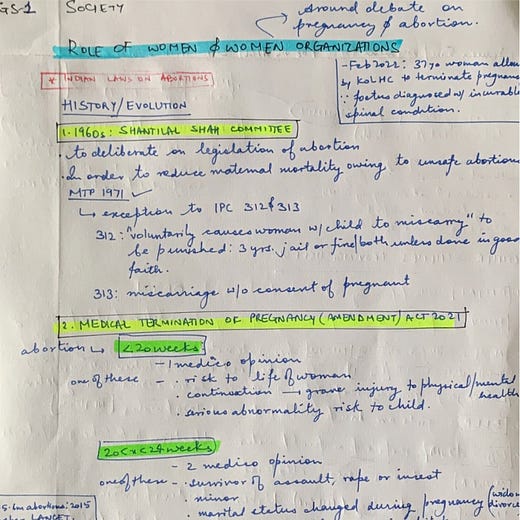 GS-1 SOCIETY
around debate on
pregnancy & abortion.
ROLE OF WOMEN & WOMEN ORGANIZATIONS
* INDIAN LAWS ON ABORTIONS
- Feb 2022: 37 yo woman allow
by Kol HC to terminate pregnan
∵ foetus diagnosed w/ incurable
spinal condition.
HISTORY/EVOLUTION
1. 1960s: SHANTILAL SHAH COMMITTEE
• to deliberate on legislation of abortion
• In order to reduce maternal mortality owing to unsafe abortions
MTP 1971
↳ exception to IPC 312 & 313
312: "voluntarily causes woman w/ child to miscarry" to
be punished: 3 yrs. jail or fine/both unless done in good
faith.
313: miscarriage w/o consent of pregnant
2. MEDICAL TERMINATION OF PREGNANCY (AMENDMENT) ACT 2021
abortion ↳ <20 weeks
- 1 medico opinion
one of these - • risk to life of woman
• continuation → grave injury to physical/mental
health
• serious abnormality risk to child.
20<x<24 weeks
- 2 medico opinion
one of these - • survivor of assault, rape or incest
• minor
• marital status changed during pregnancy (widow
divorce
5.1m abortions: 2015
LANCET